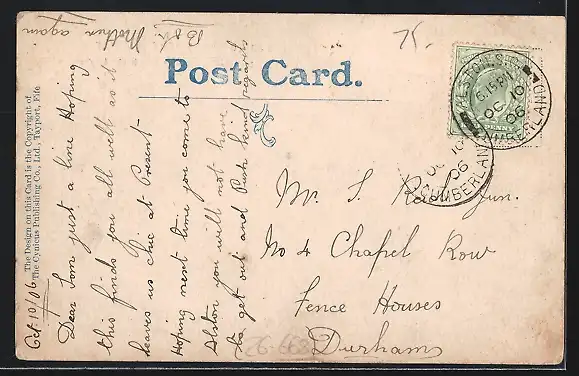 Post Card.
The Design on this Card is the Copyright of
The Cynicus Publishing Co., Ltd., Tayport, Fife
Oct 10/06
Dear Tom just a line Hoping
this finds you all well as it
leaves us chic at Present
Hoping next time you come to
Alston you will not have
to get out and Push kind regards
Mother again
75
ALSTON
6.15PM
OC 10
06
CUMBERLAND
OC 10
06
CUMBERLAND
Mr. S. Jun.
No 4 Chapel Row
Fence Houses
Durham